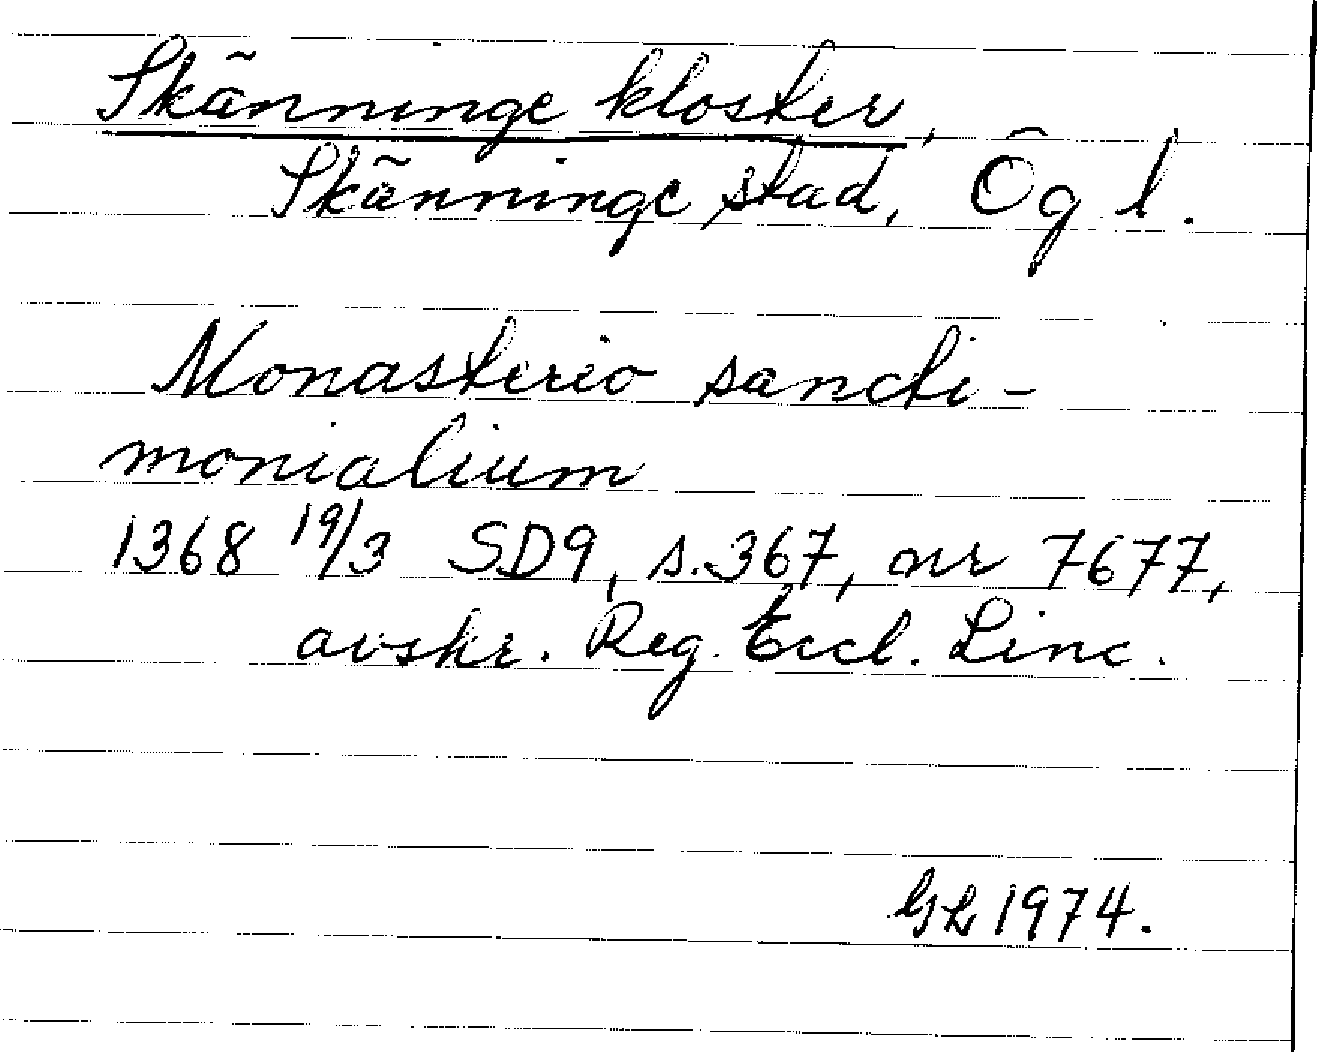 Skänninge kloster,
Skänninge stad, Ög l.
Monasterio sancti-
monialium
1368 19/3 SD9, s.367, nr 7677,
avskr. Reg. Eccl. Linc.
GL 1974.